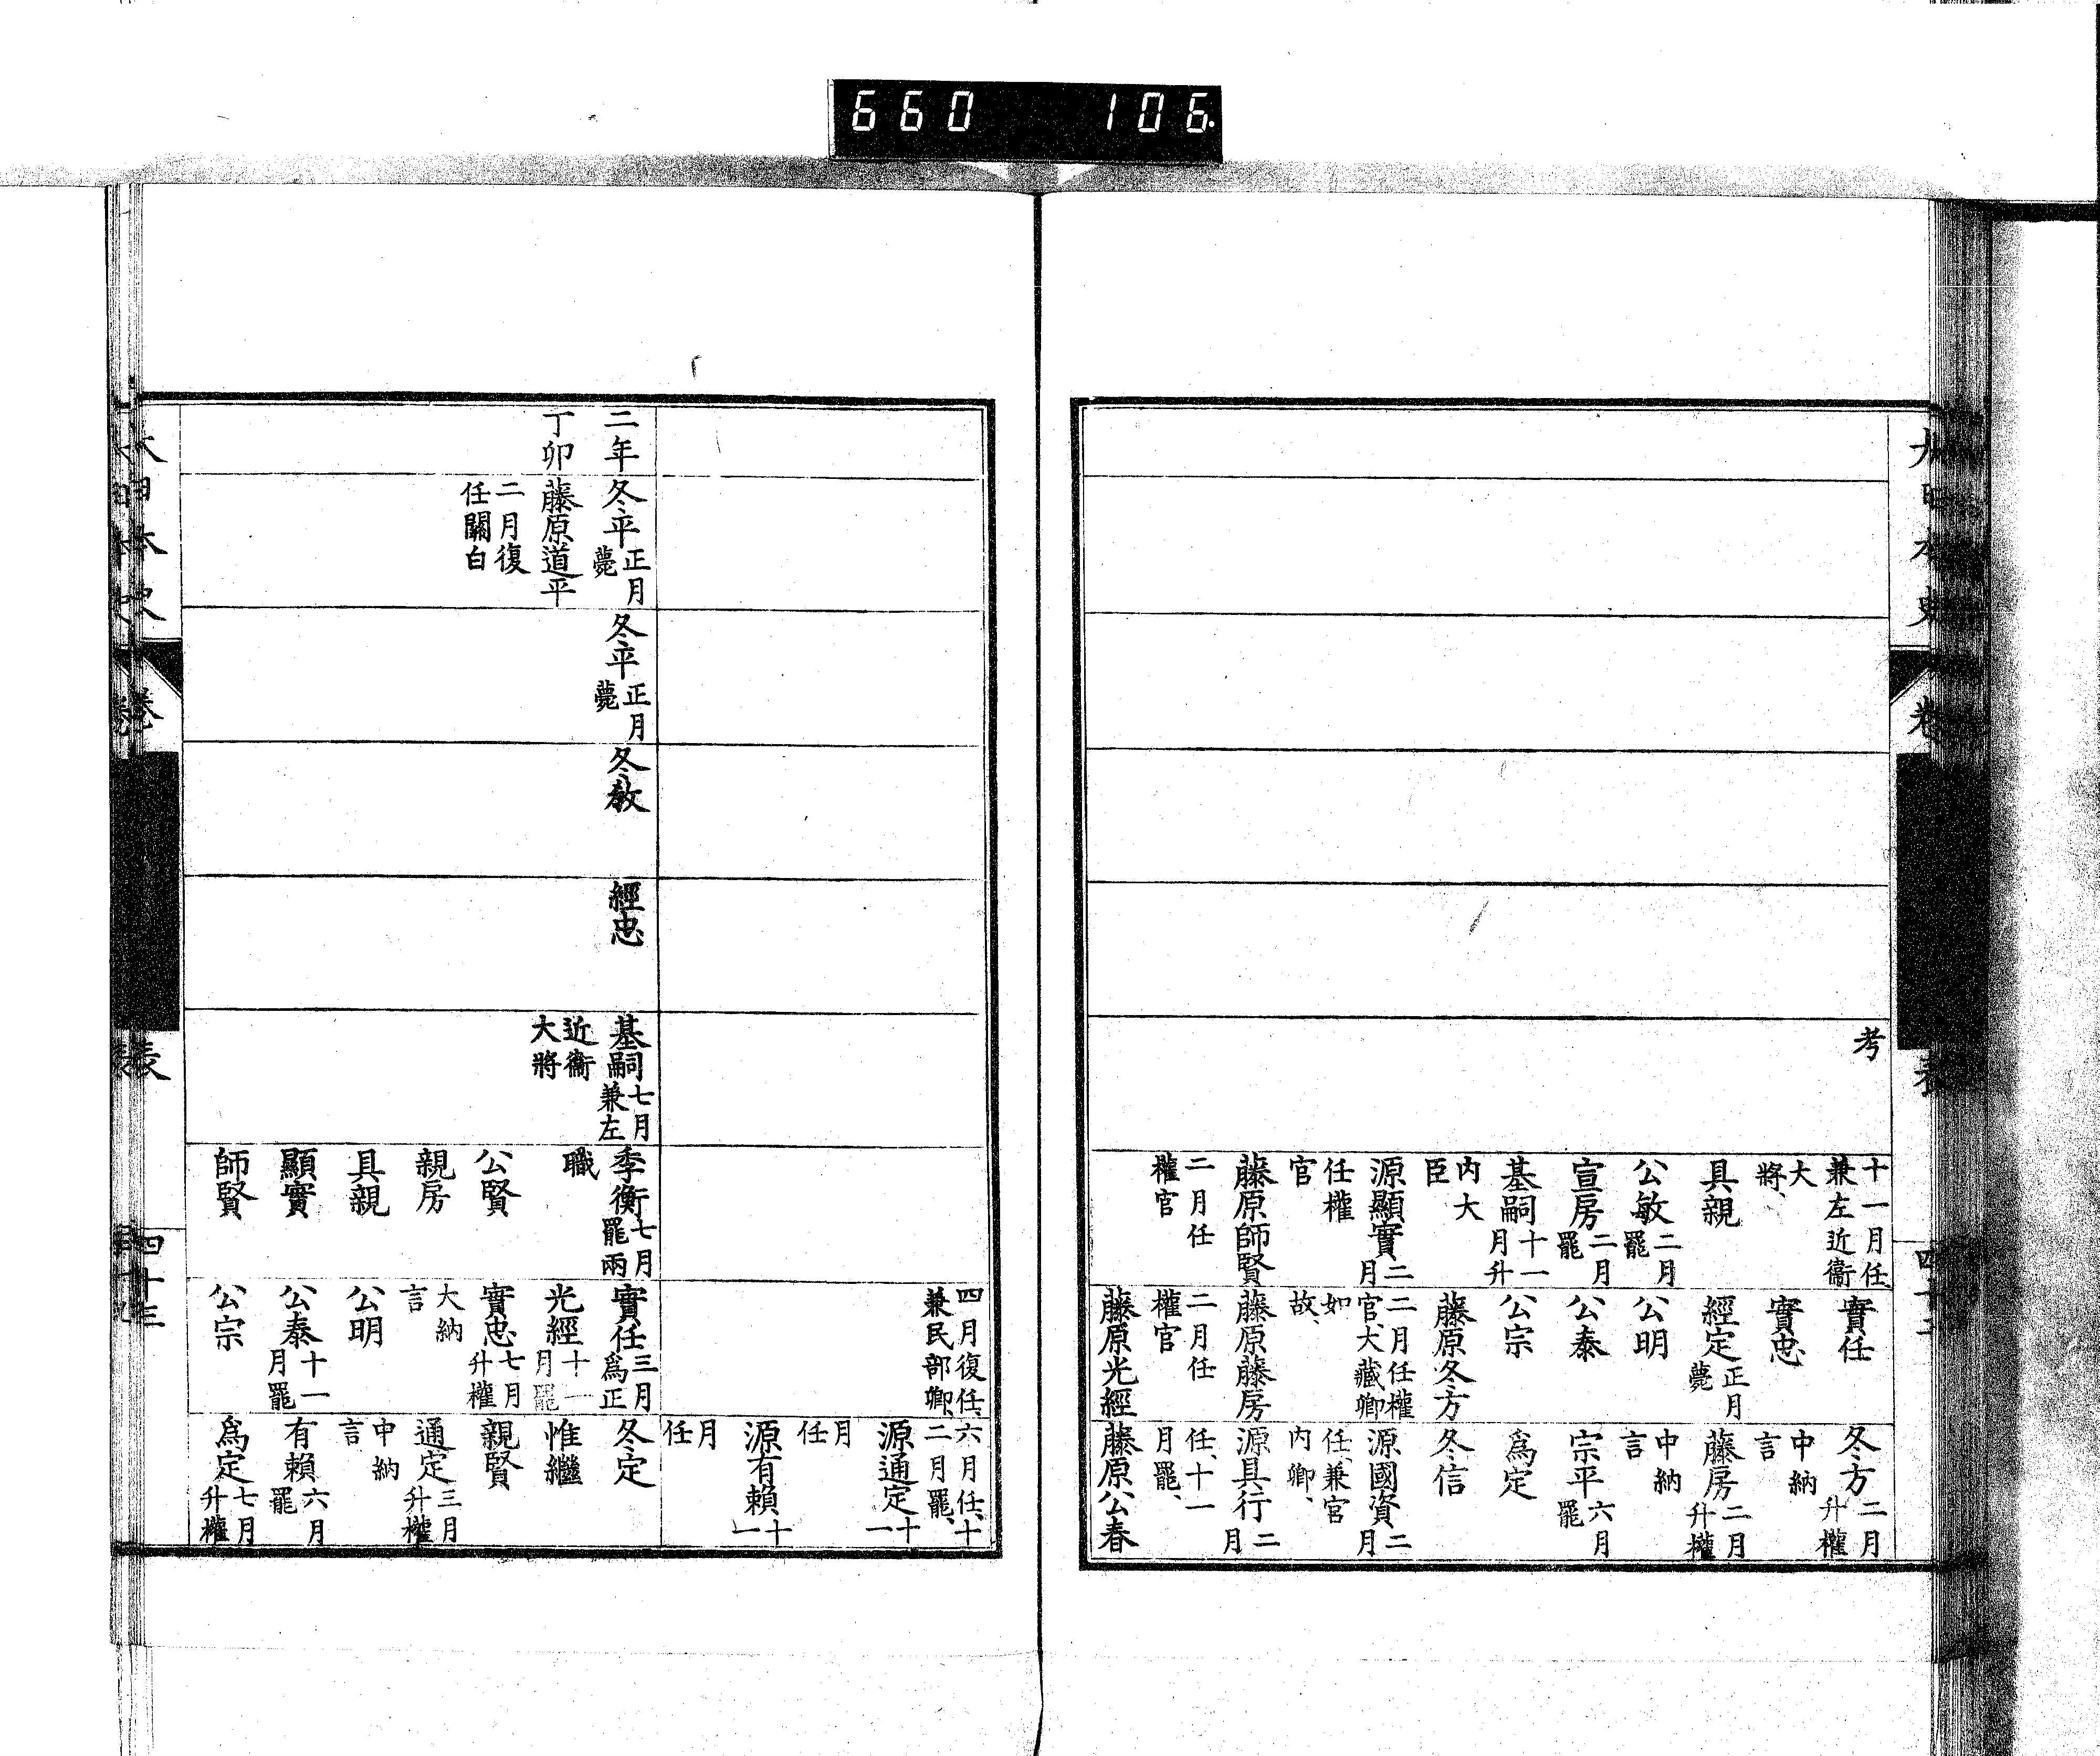 660 106
大日本史
卷
表
四十二
考
十一月任
兼左近衞
大
將、
具親
公敏二月罷
宣房二月罷
基嗣十一月升
內大
臣
源顯實二月
任權
官
藤原師賢
二月任
權官
實任
實忠
經定正月薨
公明
公泰
公宗
藤原冬方
二月任權
官、大藏卿
如
故、
藤原藤房
二月任
權官
藤原光經
冬方二月升權
中納
言
藤房二月升權
中納
言
宗平六月罷
爲定
冬信
源國資二月
任、兼宮
內卿、
源具行二月
任、十一
月罷、
藤原公春
四月復任、
兼民部卿、
六月任、十
二月罷、
源通定十一
月
任
源有賴十一
月
任
二年
丁卯
冬平正月薨
藤原道平
二月復
任關白
冬平正月薨
冬敎
經忠
基嗣七月兼左
近衞
大將
季衡七月罷兩
職
公賢
親房
具親
顯實
師賢
實任三月爲正
光經十一月罷
實忠七月升權
大納
言
公明
公泰十一月罷
公宗
冬定
惟繼
親賢
通定三月升權
中納
言
有賴六月罷
爲定七月升權
大日本史
卷
表
四十三